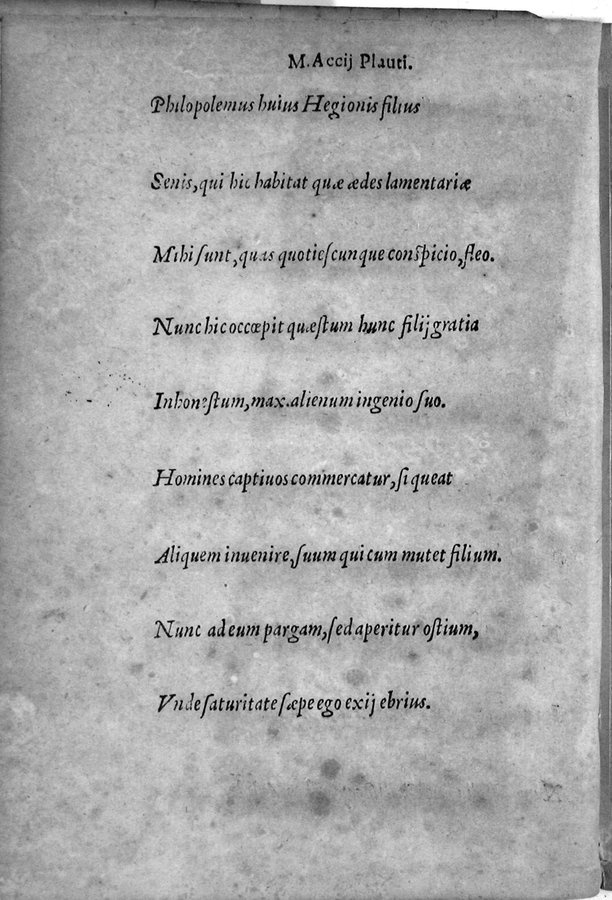 M. Accij Plauti.
Philopolemus huius Hegionis filius
Senis, qui hic habitat quæ ædes lamentariæ
Mihi sunt, quas quotiescunque conspicio, fleo.
Nunc hic occœpit quæstum hunc filij gratia
Inhonestum, max. alienum ingenio suo.
Homines captiuos commercatur, si queat
Aliquem inuenire, suum qui cum mutet filium.
Nunc ad eum pargam, sed aperitur ostium,
Vnde saturitate sæpe ego exij ebrius.